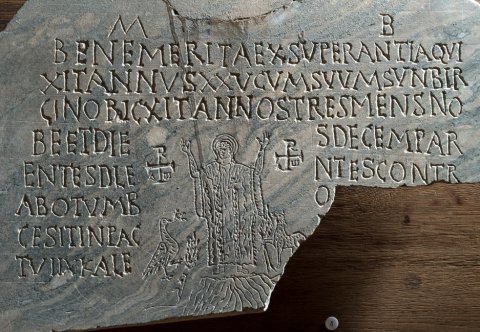 M B
BENEMERITAEXSUPERANTIAQUI
XITANNVSXXVCUMSUUMSUNBIR
GINOBICXITANNOSTRESMENSNO
BEETDIE SDECEMPAR
ENTESDLE NTESCONTR
ABOTUMB O
CESITINPAC